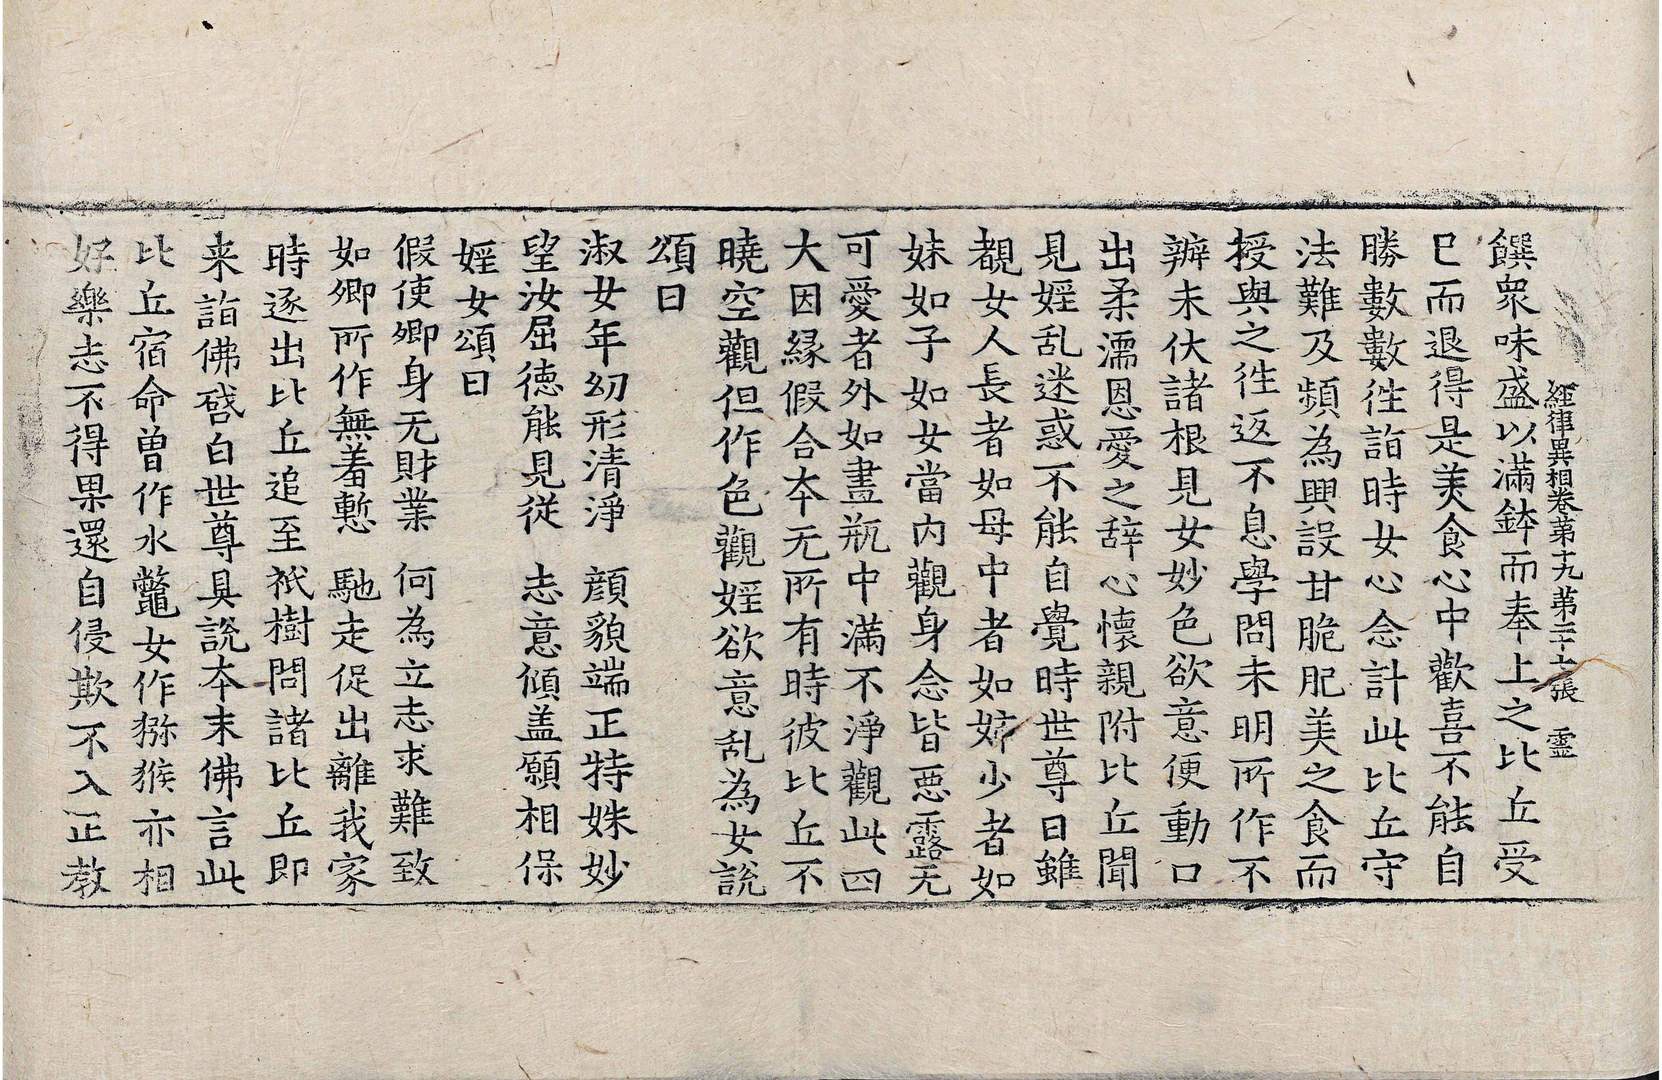 經律異相卷第十九 第三十七張 靈
饌衆味盛以滿鉢而奉上之比丘受
已而退得是美食心中歡喜不能自
勝數數徃詣時女心念計此比丘守
法難及頻為興設甘脆肥美之食而
授與之徃返不息學問未明所作不
辦未伏諸根見女妙色欲意便動口
出柔濡恩愛之辞心懷親附比丘聞
見婬乱迷惑不能自覺時世尊曰雖
覩女人長者如母中者如姊少者如
妹如子如女當內觀身念皆惡露无
可愛者外如畫瓶中滿不淨觀此四
大因緣假合本无所有時彼比丘不
曉空觀但作色觀婬欲意乱為女說
頌曰
淑女年幼形清淨 顏貌端正特姝妙
望汝屈徳能見從 志意傾盖願相保
婬女頌曰
假使卿身无財業 何為立志求難致
如卿所作無羞慙 馳走促出離我家
時逐出比丘追至祇樹問諸比丘即
来詣佛啓白世尊具說本末佛言此
比丘宿命曽作水鼈女作獼猴亦相
好樂志不得果還自侵欺不入正教